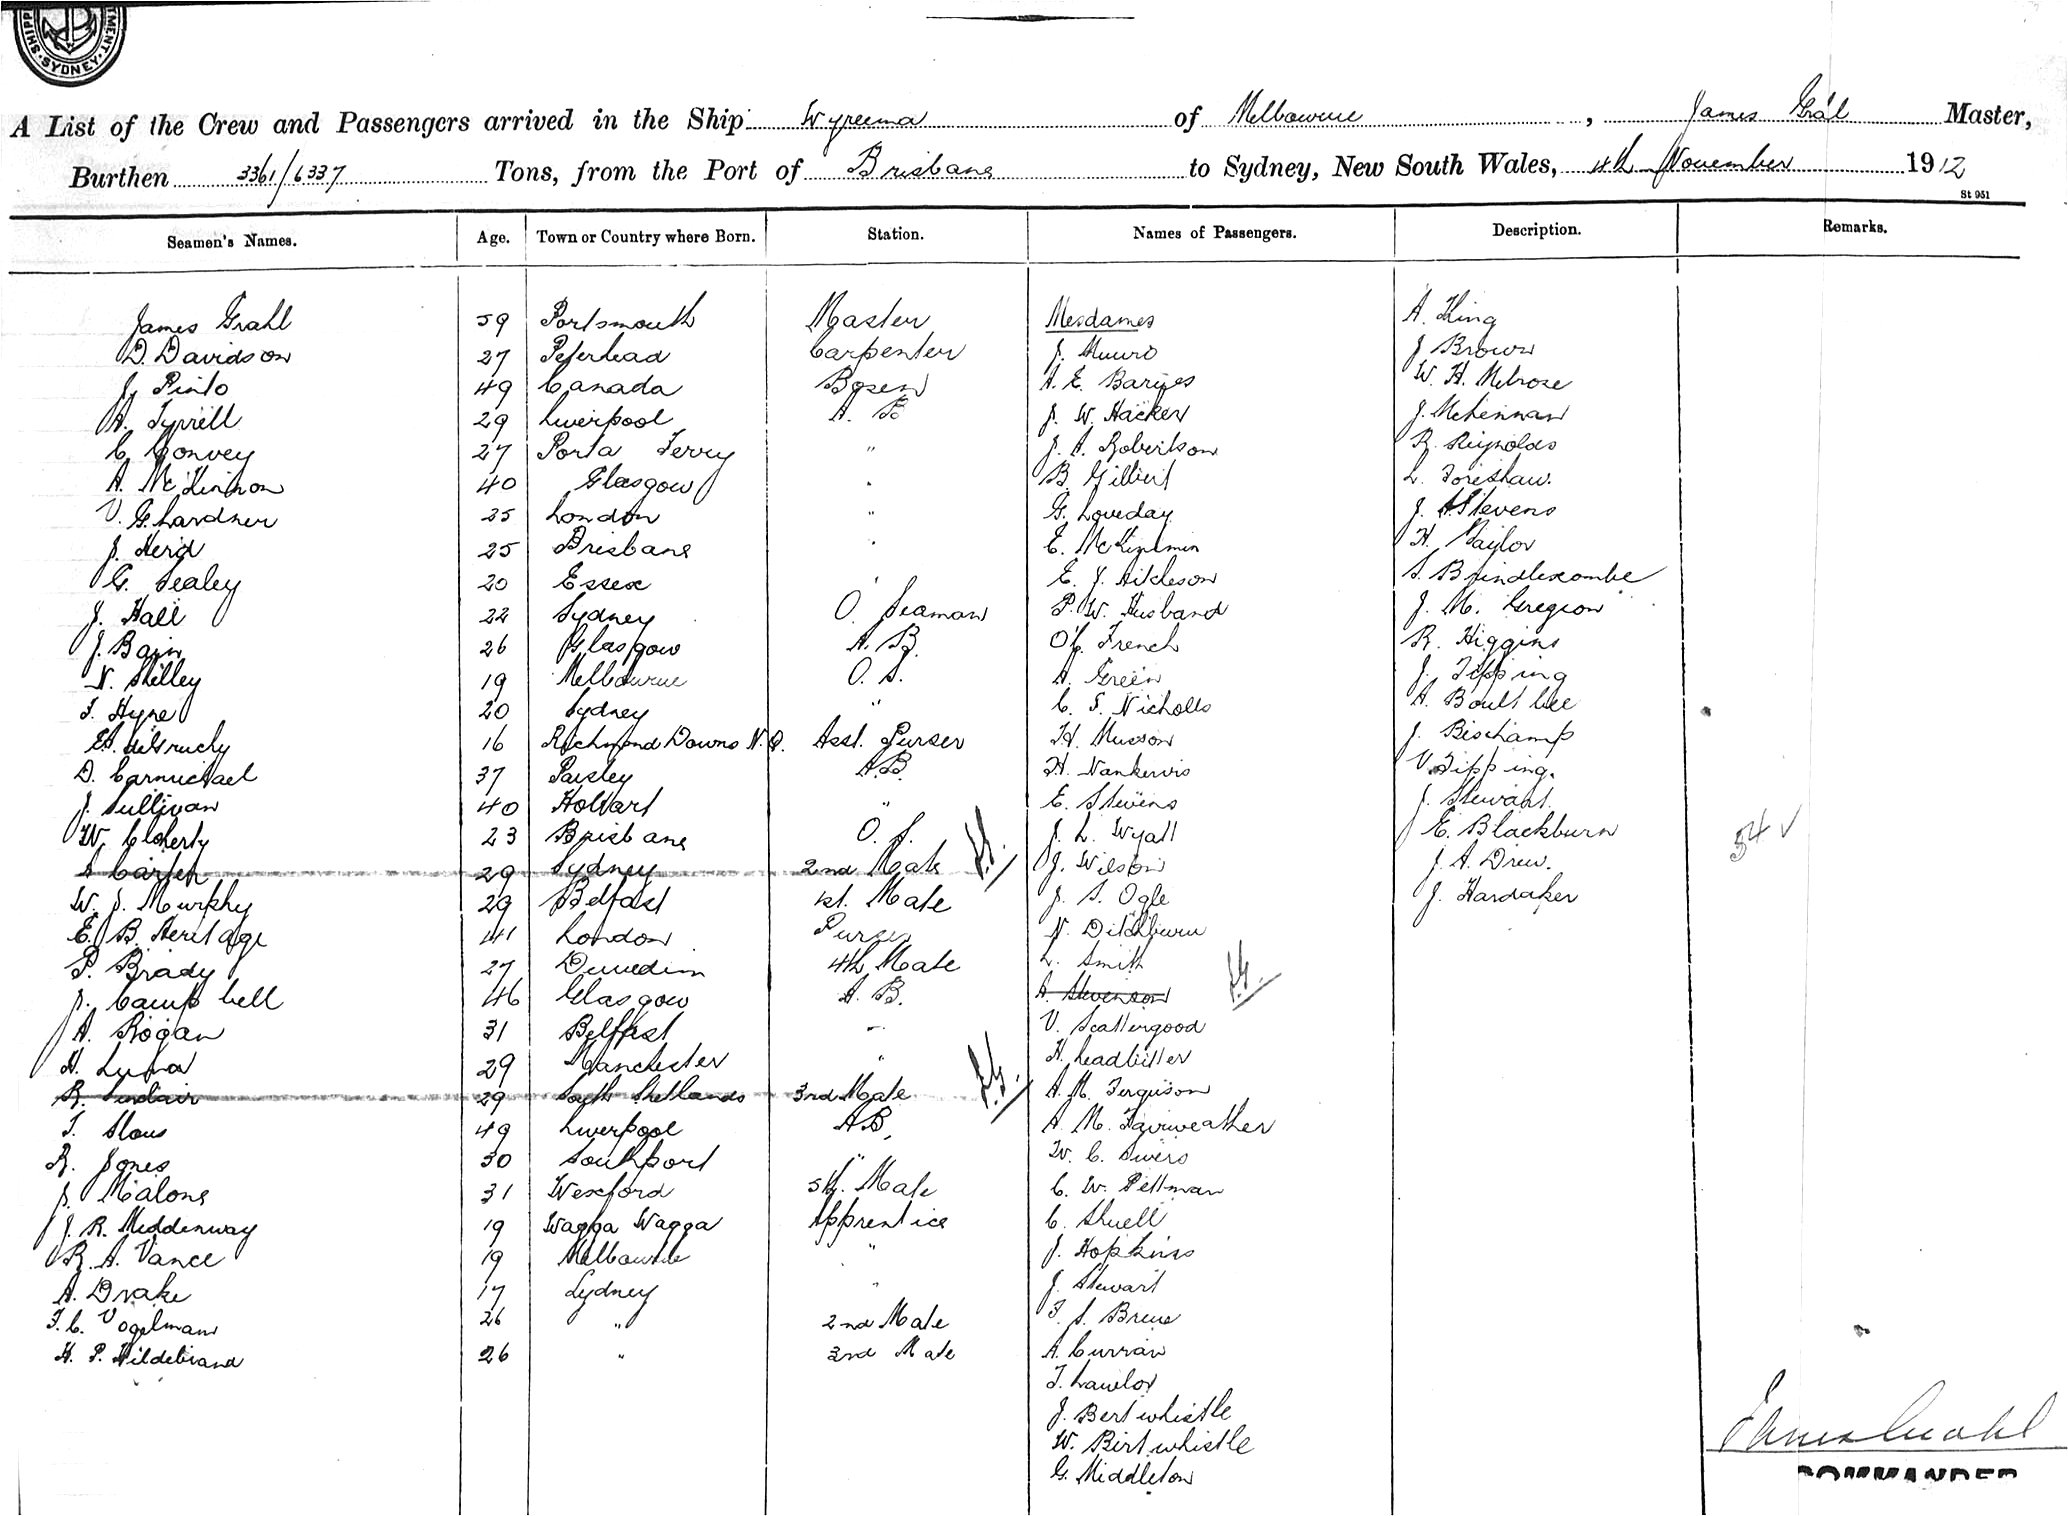 SHIPP TMENT. SYDNEY.
A List of the Crew and Passengers arrived in the Ship Wyreema of Melbourne, James Gral Master,
Burthen 3361/6337 Tons, from the Port of Brisbane to Sydney, New South Wales, 4th November 1912
St 951
Seamen's Names. Age. Town or Country where Born. Station. Names of Passengers. Description. Remarks.
James Grahl 59 Portsmouth Master Mesdames A. King
D. Davidson 27 Peterhead Carpenter J. Munro J Brown
J. Pinto 49 Canada Bosen A. E. Barnes W. H. Melrose
A. Tyrrell 29 Liverpool A. B J. W. Hacker J. McLennan
C Convey 27 Porta Ferry " J. A. Robertson R. Reynolds
A. McKinnon 40 Glasgow " B. Gilbert L. Foreshaw.
V. G. Lardner 25 London " G. Loveday J. A Stevens
J. Herd 25 Brisbane " E. McKinmin H. Taylor
G. Sealey 20 Essex " E. J. Aitcheson S. Brindlecombe
J. Hall 22 Sydney O. Seaman P. W. Husband J. M. Gregion
J. Bain 26 Glasgow A. B. French R. Higgins
N. Shelley 19 Melbourne O. S. A. Green J. Tipping
T. Hyne 20 Sydney " C. S. Nicholls A. Boultbee
16 Richmond Downs N. Q. Asst. Purser H. Musson J. Bischamp
D. Carmichael 37 Paisley A.B. H. Nankervis V. Tipping.
J. Sullivan 40 Hobart " E. Stevens J. Stewart.
W. Cloherty 23 Brisbane O. S. J. L. Wyatt E. Blackburn 54 ✓
A Carter 29 Sydney 2nd Mate J. Wilson J. A. Drew.
W. J. Murphy 29 Belfast 1st. Mate J. S. Ogle J. Hardaker
E. B. Heritage 41 London Purser N. Ditchburn
P. Brady 27 Dunedin 4th Mate L. Smith
J. Campbell 46 Glasgow A. B. A. Stevenson
A. Rogan 31 Belfast " V. Scattergood
H. 29 Manchester " H. Leadbitter
R. Sinclair 29 Shetlands 3rd Mate A. M. Ferguson
T. Slous 49 Liverpool A B, A. M. Fairweather
R. Jones 30 Southport " W. C. Sivers
J. Malone 31 Wexford 5th. Mate C. W. Pellman
J. R. Middenway 19 Wagga Wagga Apprentice C. Shuell
R. A. Vance 19 Melbourne " J. Hopkins
A. Drake 17 Sydney " J. Stewart
F. C. Vogelman 26 " 2nd Mate F. S. Breue
H. P. Hildebrand 26 " 3rd Mate A. Curran
T. Lawlor
J. Bertwhistle
W. Birtwhistle
G. Middleton
James Grahl
COMMANDER